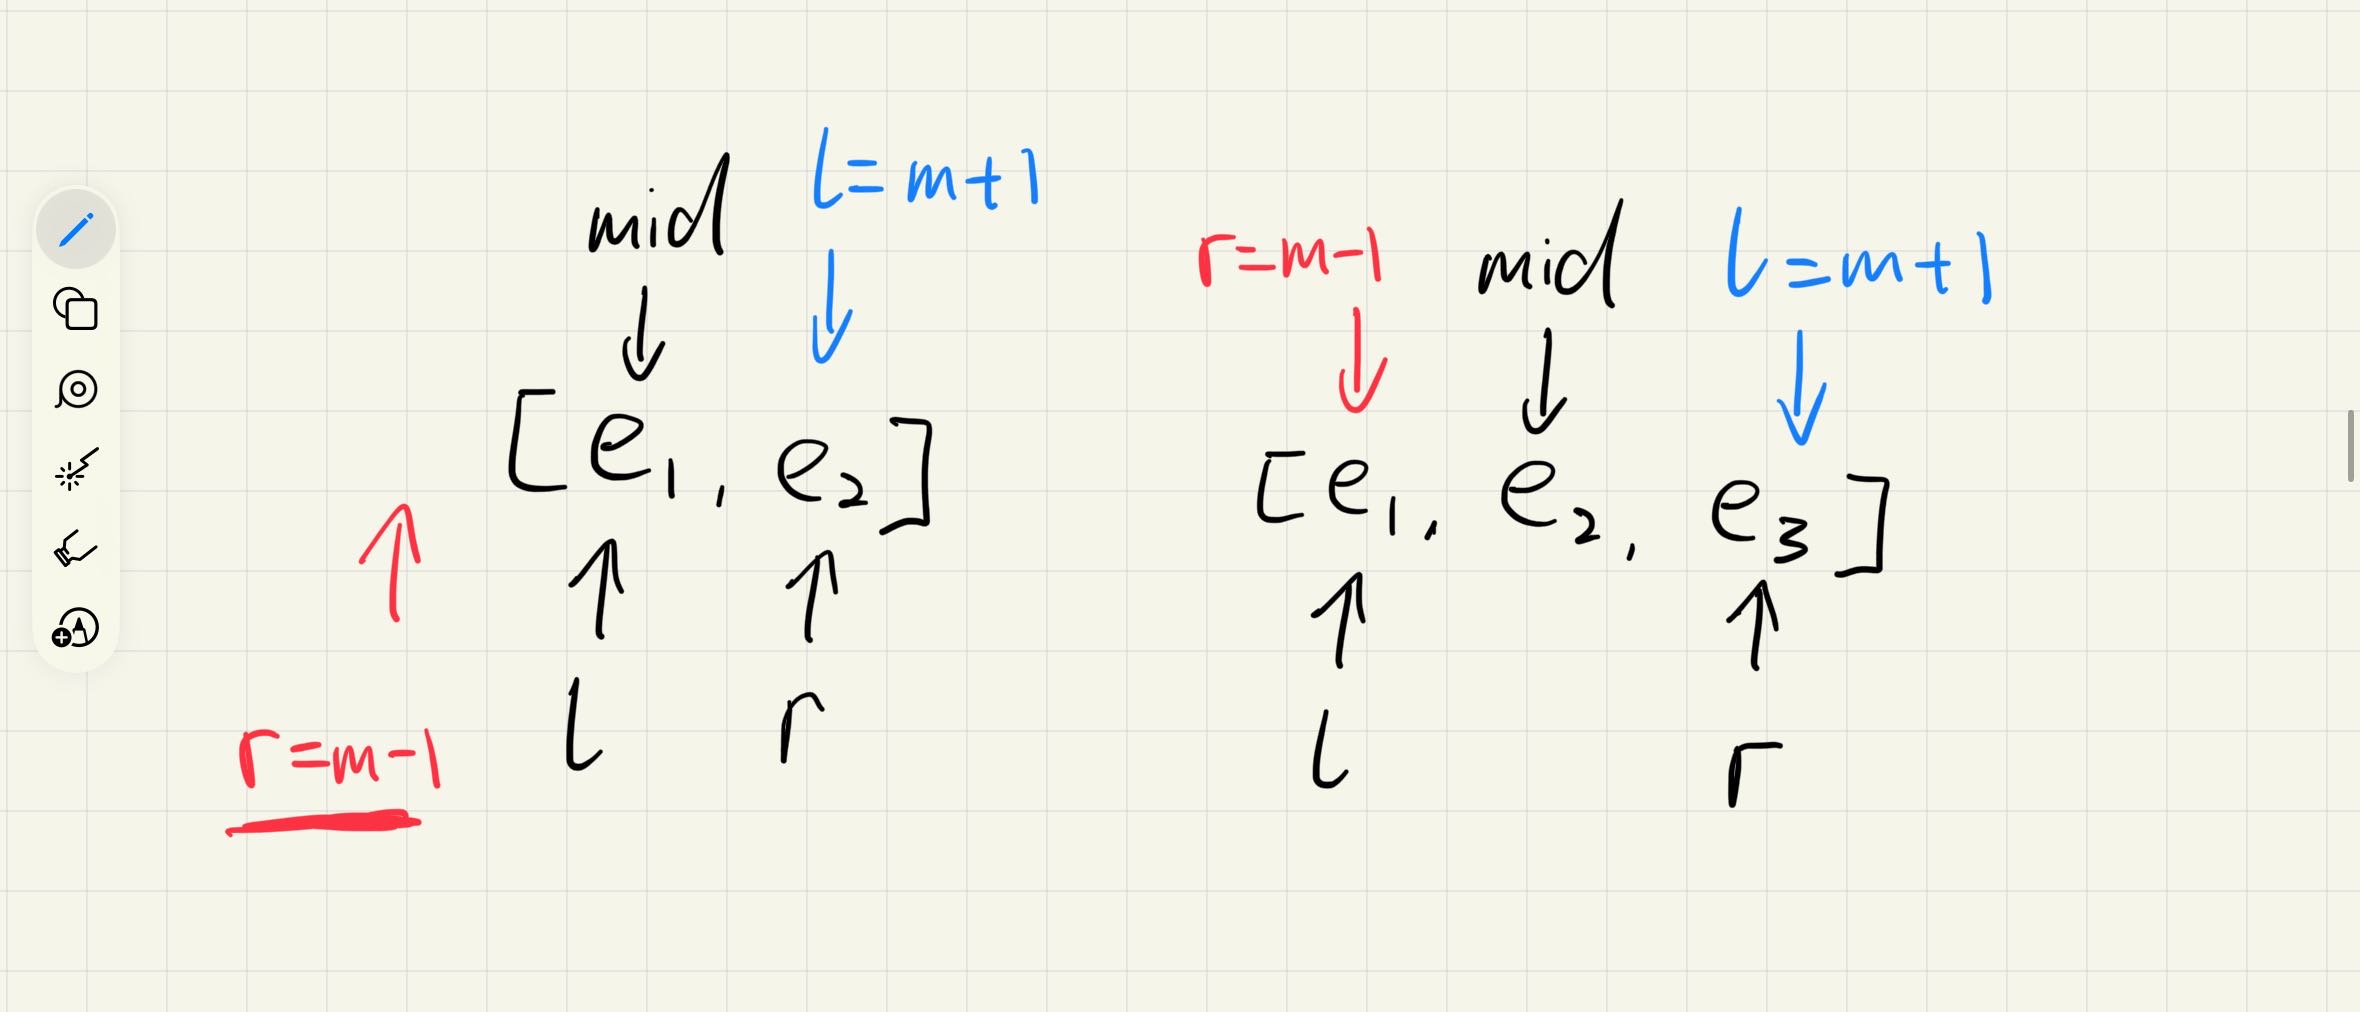 mid l=m+1
[e1, e2]
l r
r=m-1
r=m-1 mid l=m+1
[e1, e2, e3]
l r